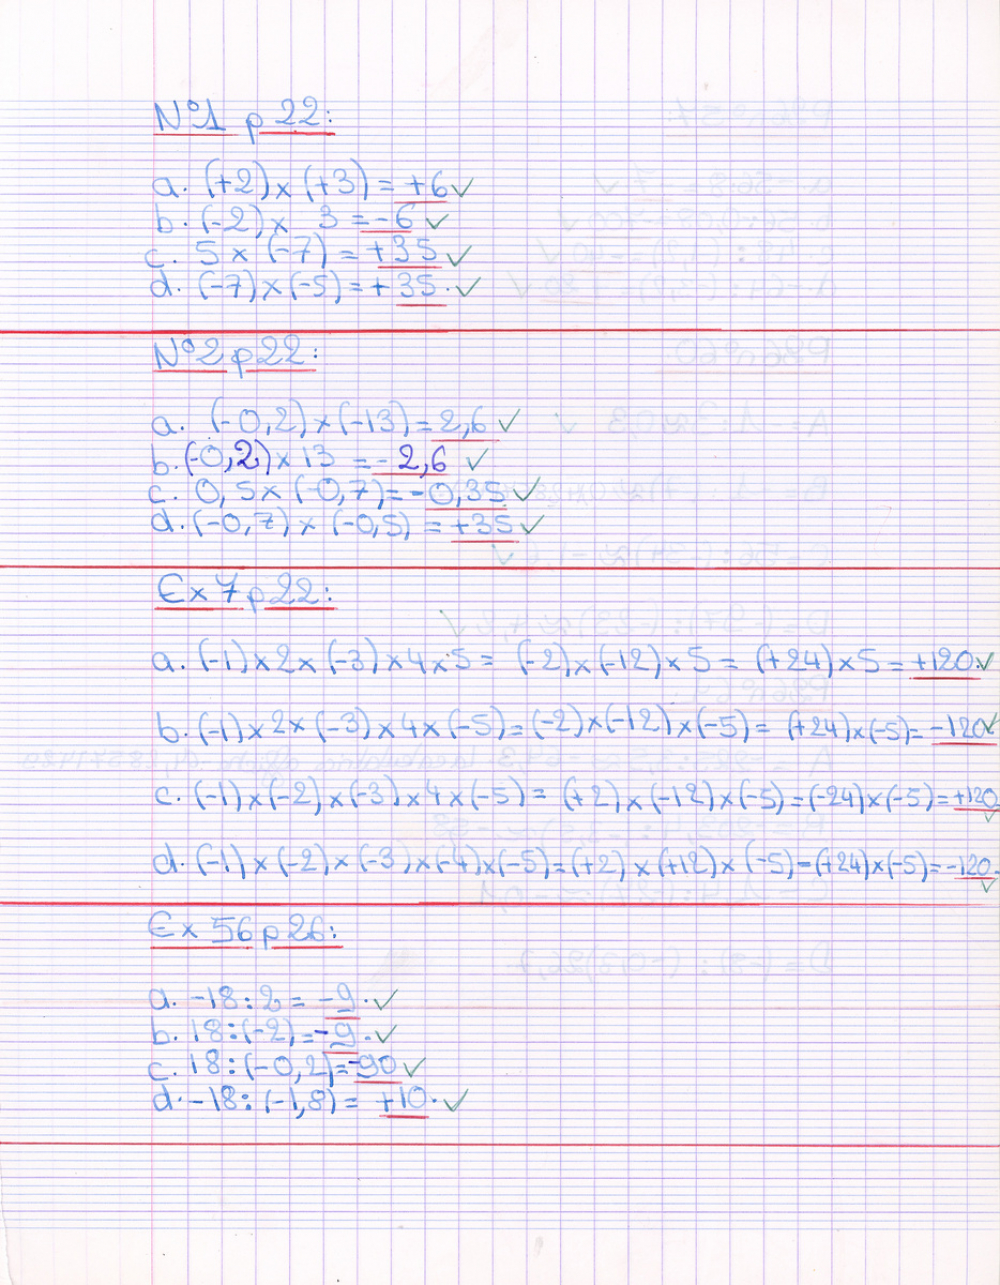 N°1 p 22:
a. (+2) × (+3) = +6 ✓
b. (-2) × 3 = -6 ✓
c. 5 × (-7) = +35 ✓
d. (-7) × (-5) = + 35. ✓
N°2 p 22:
a. (-0,2) × (-13) = 2,6 ✓
b. (-0,2) × 13 = - 2,6 ✓
c. 0,5 × (-0,7) = -0,35 ✓
d. (-0,7) × (-0,5) = +35 ✓
Ex 7 p 22:
a. (-1) × 2 × (-3) × 4 × 5 = (-2) × (-12) × 5 = (+24) × 5 = +120. ✓
b. (-1) × 2 × (-3) × 4 × (-5) = (-2) × (-12) × (-5) = (+24) × (-5) = -120 ✓
c. (-1) × (-2) × (-3) × 4 × (-5) = (+2) × (-12) × (-5) = (-24) × (-5) = +120 ✓
d. (-1) × (-2) × (-3) × (-4) × (-5) = (+2) × (+12) × (-5) = (+24) × (-5) = -120. ✓
Ex 56 p 26:
a. -18 : 2 = -9. ✓
b. 18 : (-2) = -9. ✓
c. 18 : (-0,2) = -90 ✓
d. -18 : (-1,8) = +10. ✓